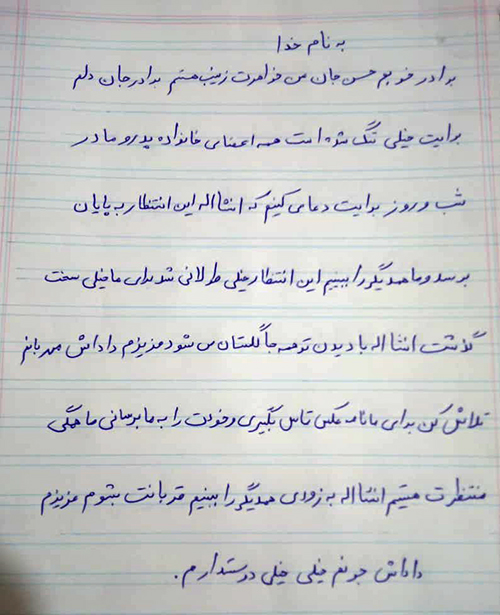 به نام خدا
برادر خوبم حسن جان من خواهرت زینب هستم برادر جان دلم
برایت خیلی تنگ شده است همه اعضای خانواده پدر و مادر
شب و روز برایت دعا می کنیم که انشااله این انتظار به پایان
برسد و ما همدیگر را ببینیم این انتظار خیلی طولانی شد برای ما خیلی سخت
گذشت انشااله با دیدن تو همه جا گلستان می شود عزیزم داداش مهربانم
تلاش کن برای ما نامه عکس تماس بگیری و خودت را به ما برسانی ما همگی
منتظرت هستیم انشااله به زودی همدیگر را ببینیم قربانت بشوم عزیزم
داداش جونم خیلی خیلی دوستدارم.